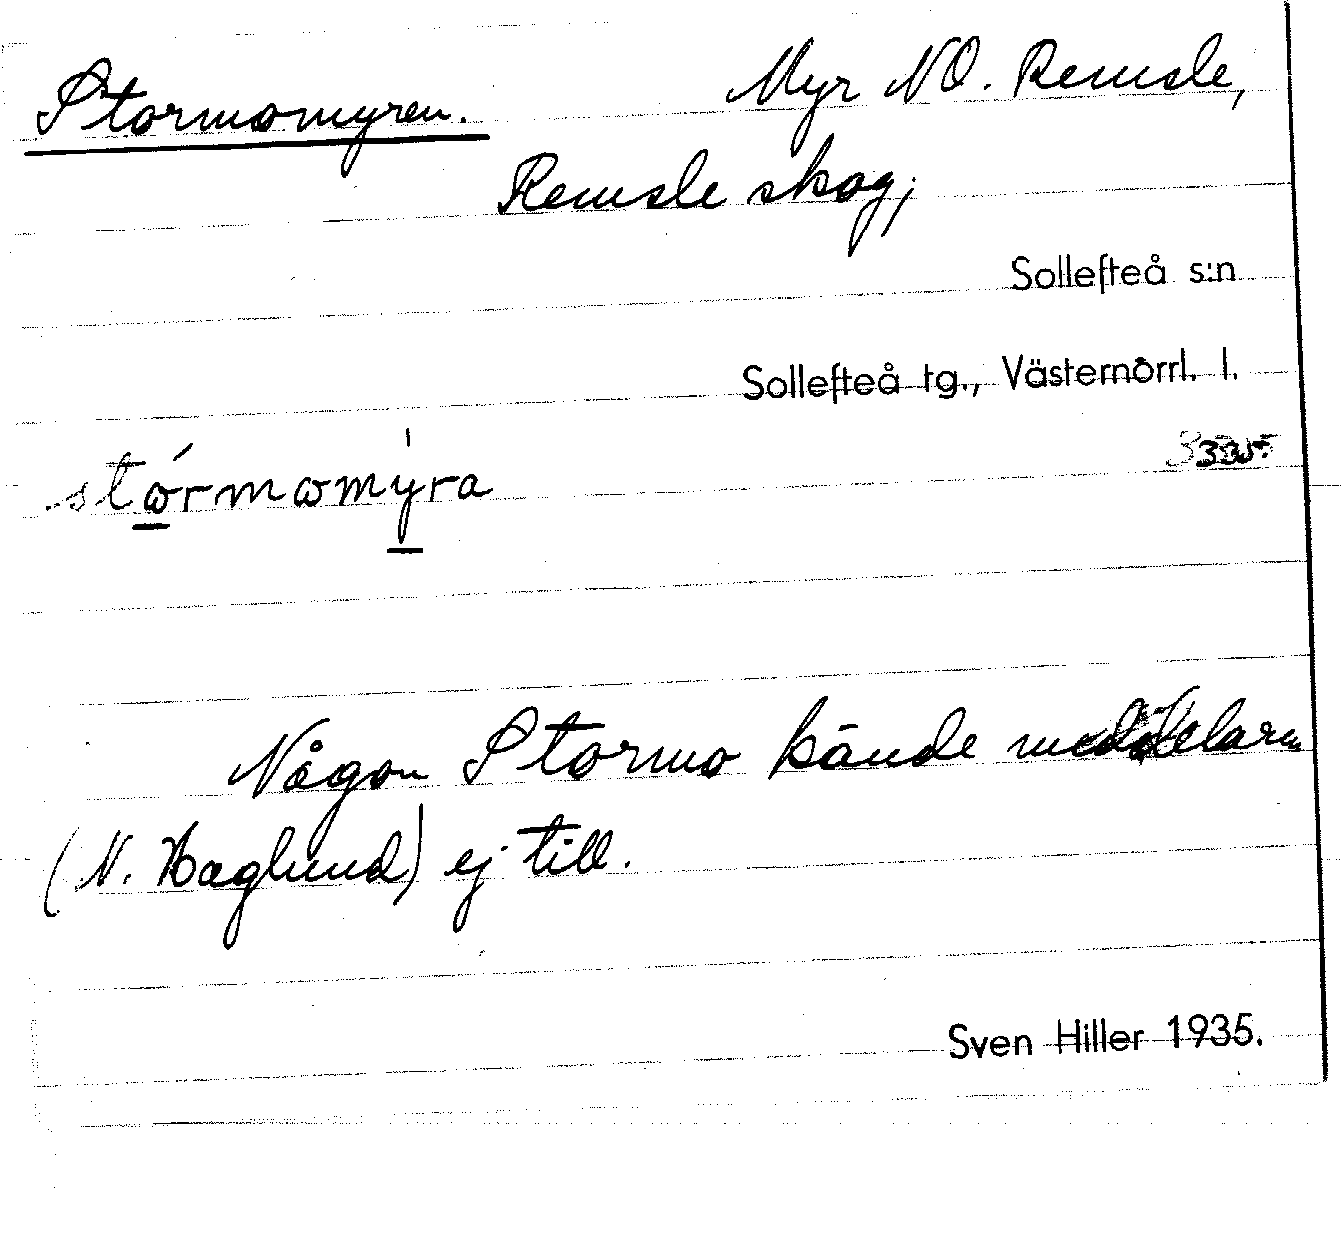 Stormomyren. Myr NO. Remsle,
Remsle skog,
Sollefteå s:n
Sollefteå tg., Västernorrl. l.
stormomyra
Någon Stormo kände meddelaren
(N. Haglund) ej till.
Sven Hiller 1935.